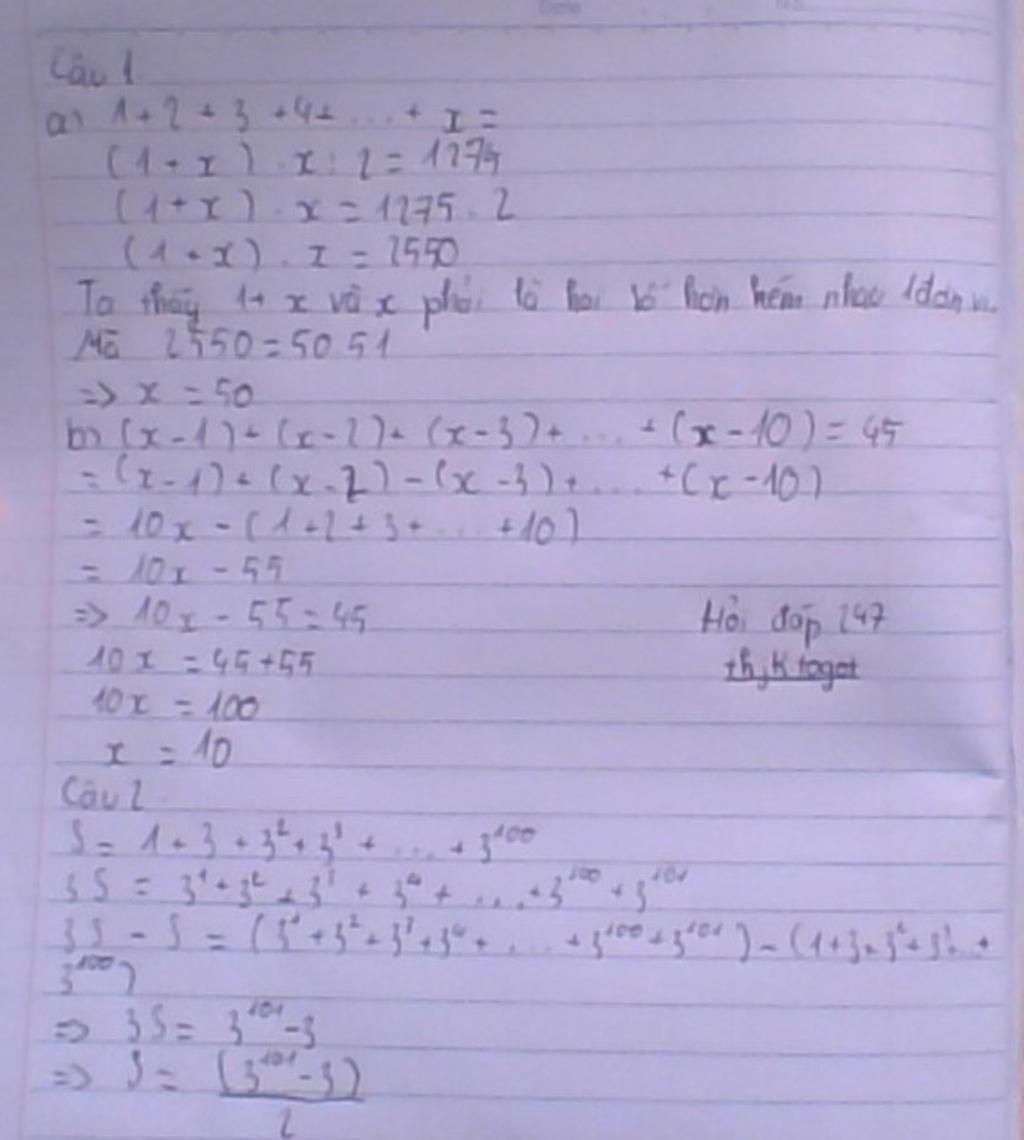 Câu 1
a) 1 + 2 + 3 + 4 + ... + x =
(1 + x) . x : 2 = 1275
(1 + x) . x = 1275 . 2
(1 + x) . x = 2550
Ta thấy 1 + x và x phải là hai số hơn kém nhau 1 đơn vị.
Mà 2550 = 50 51
=> x = 50
b) (x - 1) + (x - 2) + (x - 3) + ... + (x - 10) = 45
= (x - 1) + (x - 2) - (x - 3) + ... + (x - 10)
= 10x - (1 + 2 + 3 + ... + 10)
= 10x - 55
=> 10x - 55 = 45
Hỏi đáp 247
10x = 45 + 55
10x = 100
x = 10
Câu 2
S = 1 + 3 + 3² + 3³ + ... + 3¹⁰⁰
3S = 3¹ + 3² + 3³ + 3⁴ + ... + 3¹⁰⁰ + 3¹⁰¹
3S - S = (3¹ + 3² + 3³ + 3⁴ + ... + 3¹⁰⁰ + 3¹⁰¹) - (1 + 3 + 3² + 3³ ... +
3¹⁰⁰)
=> 3S = 3¹⁰¹ - 3
=> S = (3¹⁰¹ - 3)
2